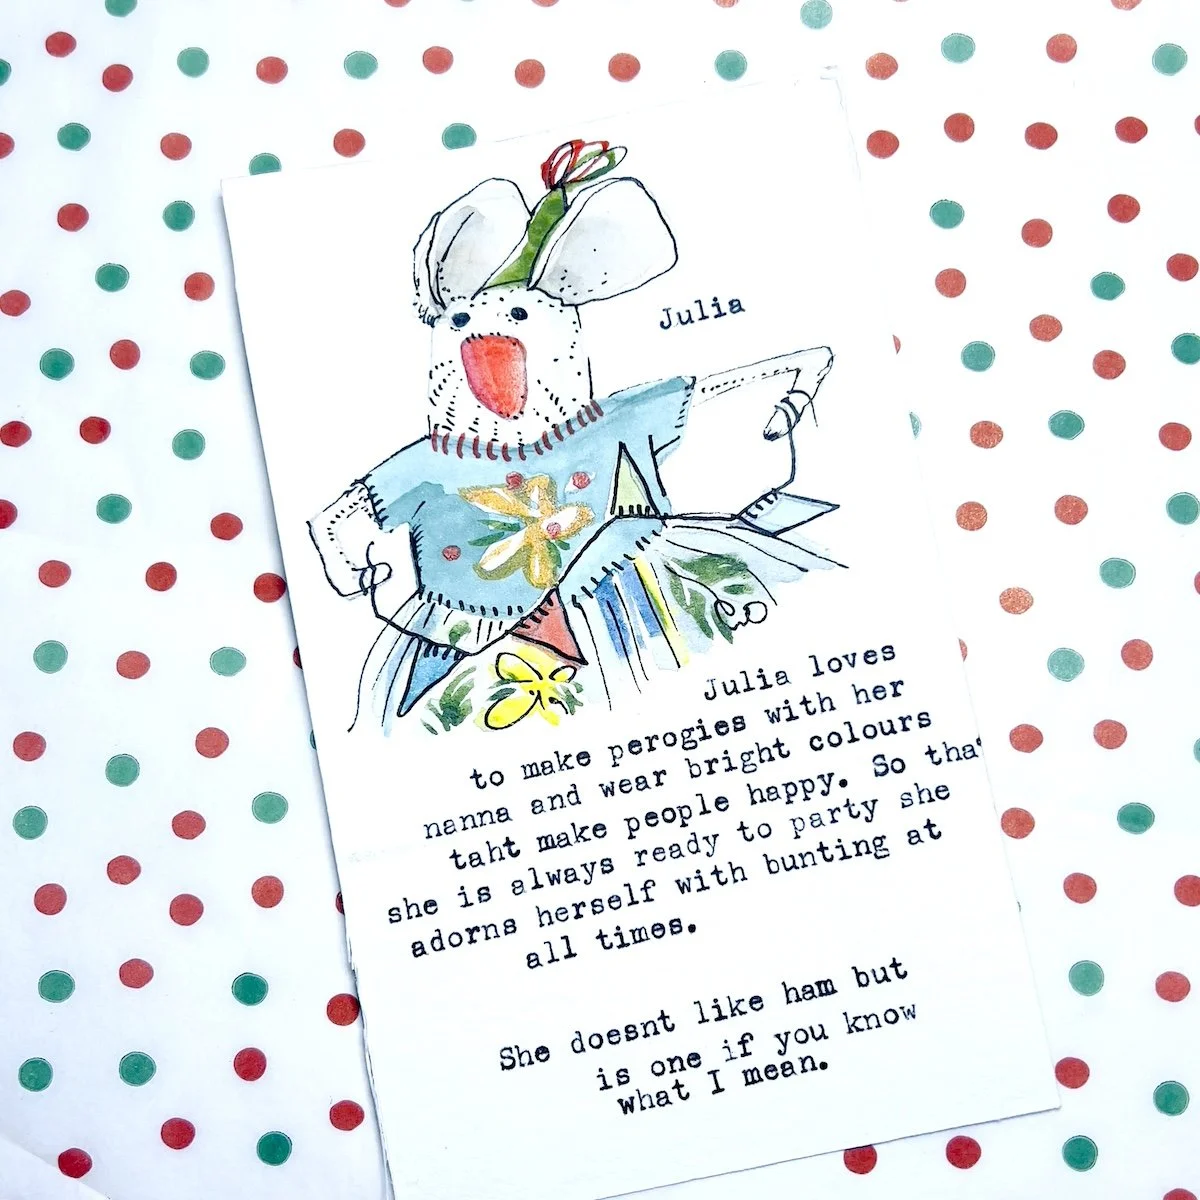 Julia
Julia loves
to make perogies with her
nanna and wear bright colours
taht make people happy. So that
she is always ready to party she
adorns herself with bunting at
all times.
She doesnt like ham but
is one if you know
what I mean.